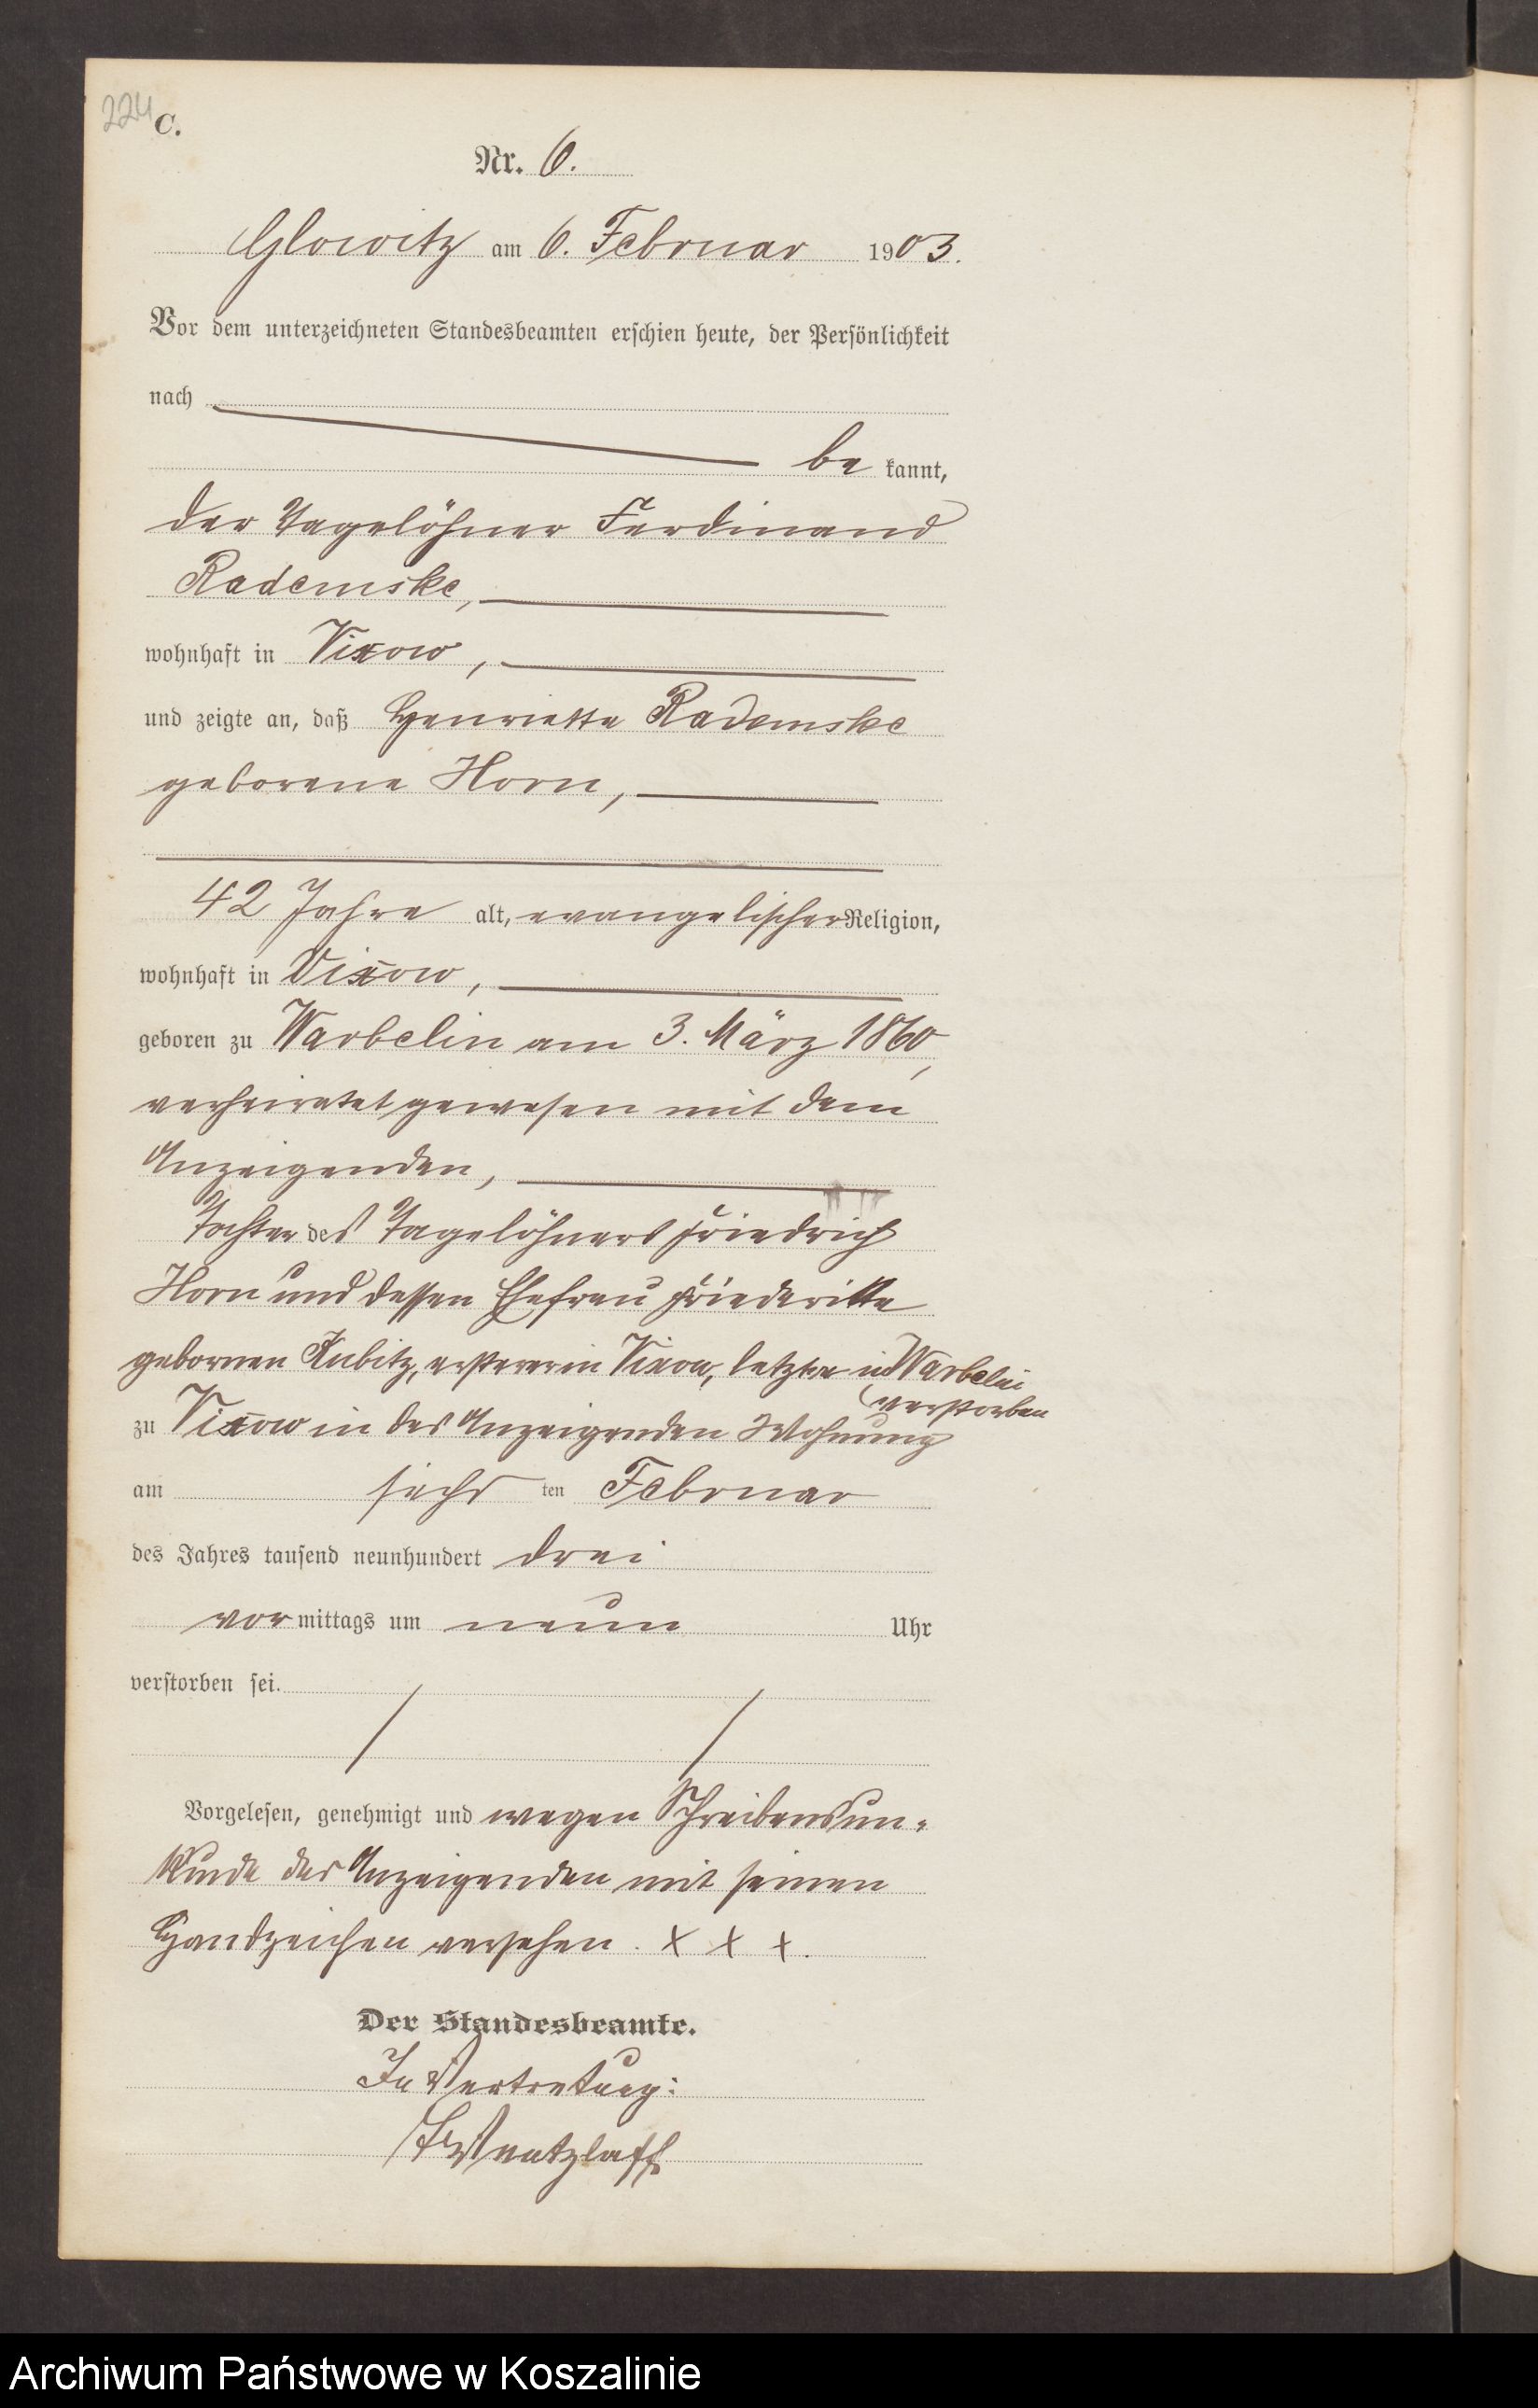 224
C.
Nr. 6.
Glowitz am 6. Februar 1903.
Vor dem unterzeichneten Standesbeamten erschien heute, der Persönlichkeit
nach
be kannt,
der Tagelöhner Ferdinand
Rademske,
wohnhaft in Vixow,
und zeigte an, daß Henriette Rademske
geborene Horn,
42 Jahre alt, evangelischer Religion,
wohnhaft in Vixow,
geboren zu Warbelin am 3. März 1860,
verheiratet gewesen mit dem
Anzeigenden,
Tochter des Tagelöhners Friedrich
Horn und dessen Ehefrau Friederikke
gebornen Kubitz, ersterer in Vixow, letztre in Warbelin
verstorben
zu Vixow in des Anzeigenden Wohnung
am sechs ten Februar
des Jahres tausend neunhundert drei
vor mittags um neun Uhr
verstorben sei.
Vorgelesen, genehmigt und wegen Schreibensun-
kunde des Anzeigenden mit seinen
Handzeichen versehen. x x x.
Der Standesbeamte.
In Vertretung:
Archiwum Państwowe w Koszalinie